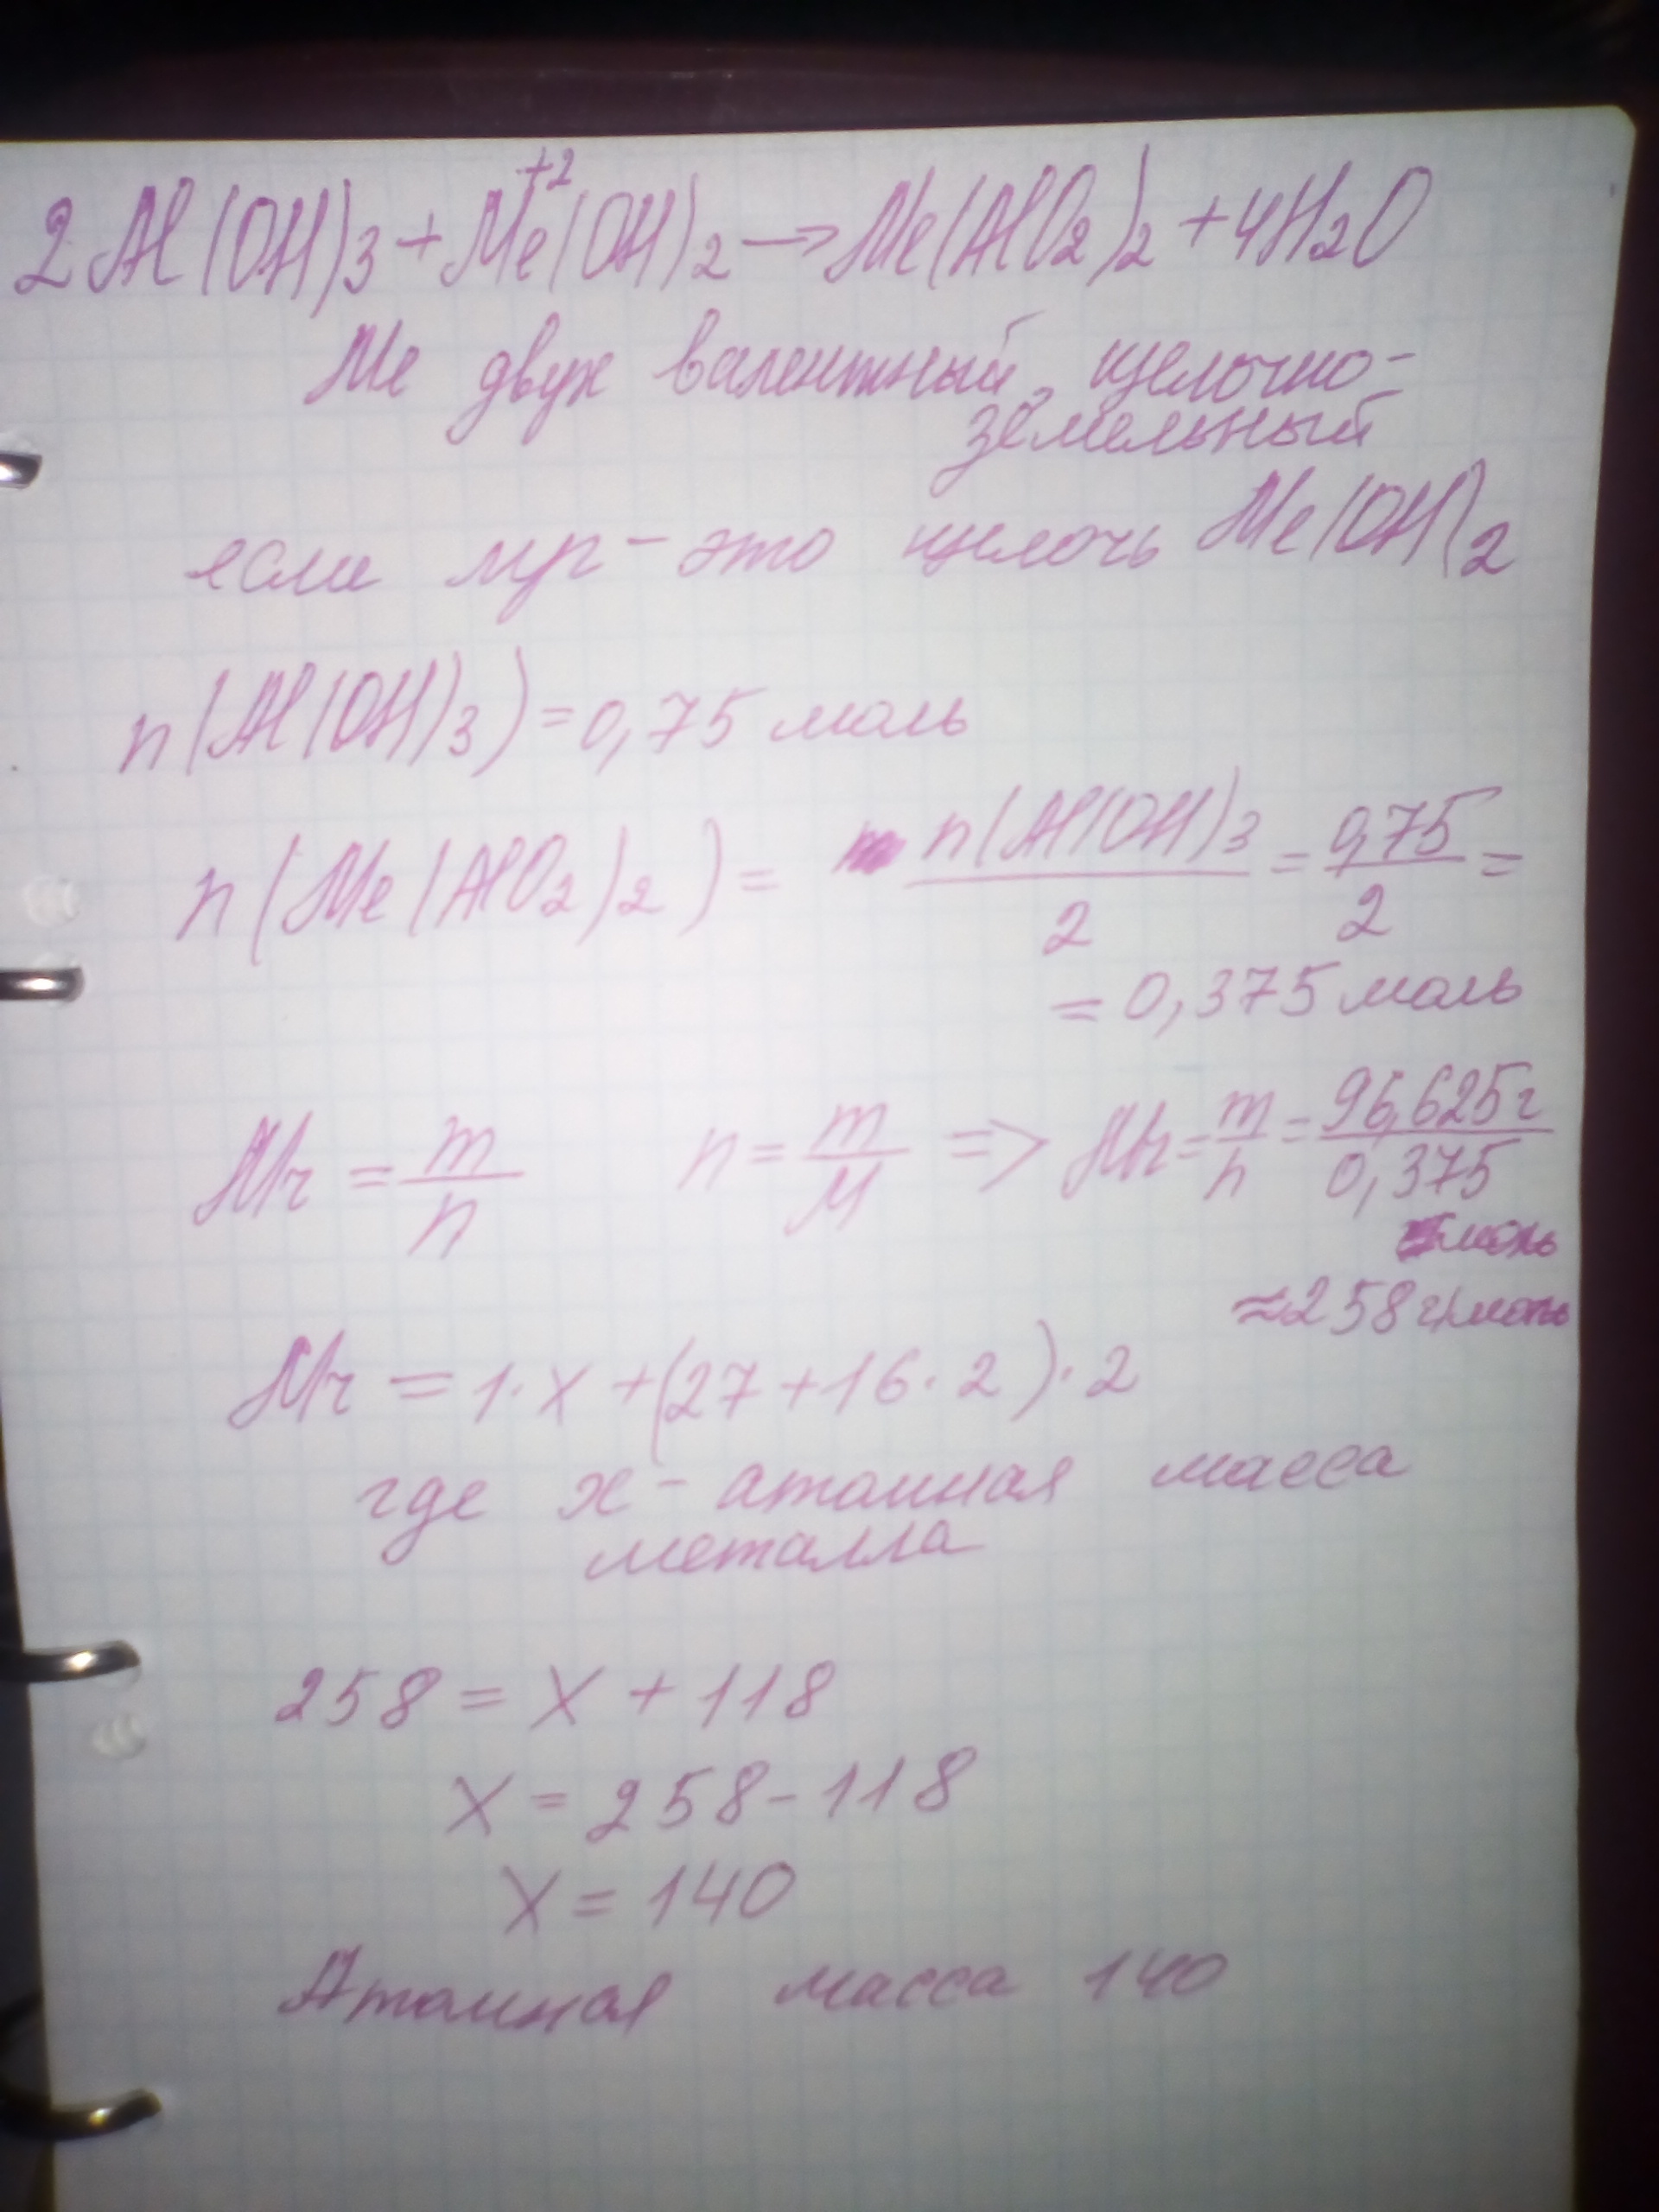 2Al(OH)3 + Me(OH)2 → Me(AlO2)2 + 4H2O
+2
Me двух валентный, щелочно-
земельный
если мр - это щелочь Me(OH)2
n(Al(OH)3) = 0,75 моль
n(Me(AlO2)2) = n(Al(OH)3 / 2 = 0,75 / 2 =
= 0,375 моль
Mr = m / n n = m / M => Mr = m / n = 96,625г / 0,375
моль
≈258 г/моль
Mr = 1·x + (27 + 16·2)·2
где x - атомная масса
металла
258 = x + 118
x = 258 - 118
x = 140
Атомная масса 140